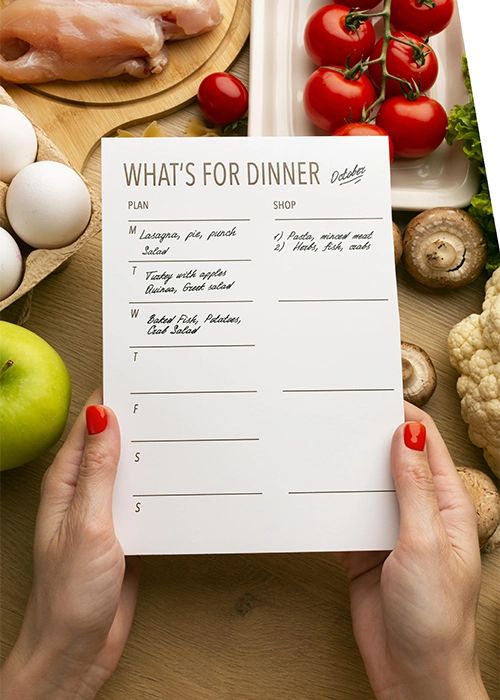 WHAT'S FOR DINNER October
PLAN
SHOP
M Lasagna, pie, punch
Salad
T Turkey with apples
Quinoa, Greek salad
W Baked Fish, Potatoes,
Crab Salad
T
F
S
S
1) Pasta, minced meat
2) Herbs, fish, crabs